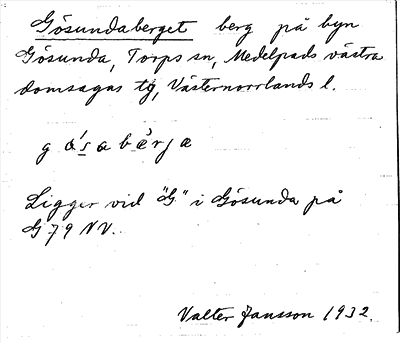 Gösundaberget berg på byn
Gösunda, Torps sn, Medelpads västra
domsagas tg, Västernorrlands l.
g ó̱s a b è̱r j a
Ligger vid "G" i Gösunda på
G 79 NV.
Valter Jansson 1932.